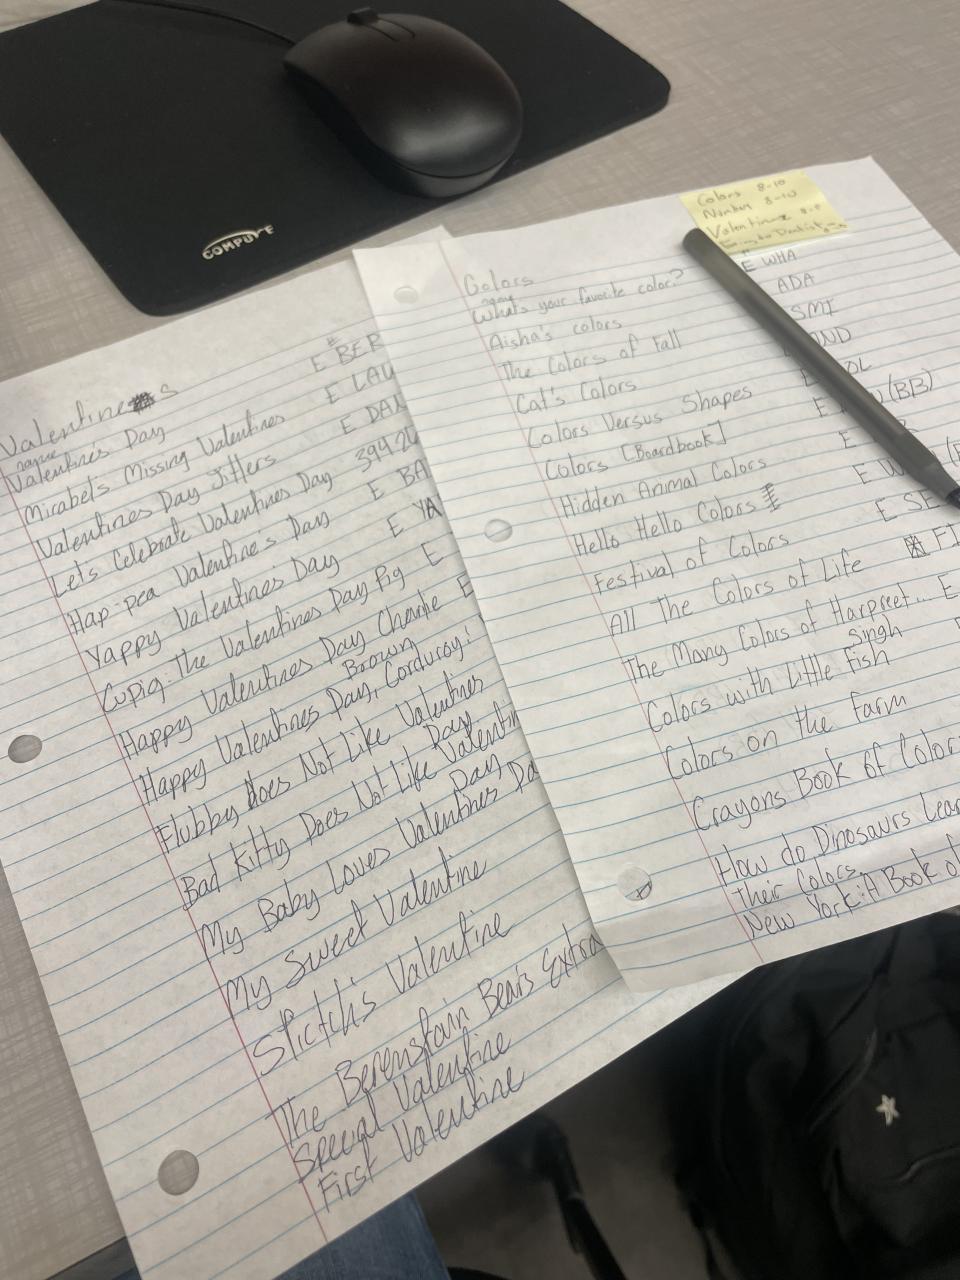 COMPUTE
Colors 8-10
Number 8-10
Valentines
Going to Dentist
Valentines
name #
Valentine's Day E BER
Mirabel's Missing Valentines E LAU
Valentines Day Jitters E DAN
Lets Celebrate Valentines Day 394.26
Hap-pea Valentine's Day E BA
Yappy Valentines Day E YA
Cupig: The Valentines Day Pig E
Happy Valentines Day Charlie E
Brown
Happy Valentines Day, Corduroy!
Flubby does Not Like Valentines
Day
Bad Kitty Does Not Like Valentin
Day
My Baby Loves Valentines Da
My Sweet Valentine
Stictch's Valentine
The Berenstain Bears Extra
Special Valentine
First Valentine
Colors
name
What's your favorite color? E WHA
Aisha's colors ADA
The Colors of Fall SMI
Cat's Colors ND
Colors Versus Shapes OL
Colors [Boardbook] E (BB)
Hidden Animal Colors E
Hello Hello Colors E
Festival of Colors E SE
All The Colors of Life FI
The Many Colors of Harpreet... E
Singh
Colors with Little Fish
Colors on the Farm
Crayons Book of Color
How do Dinosaurs Lear
Their Colors
New York: A Book of